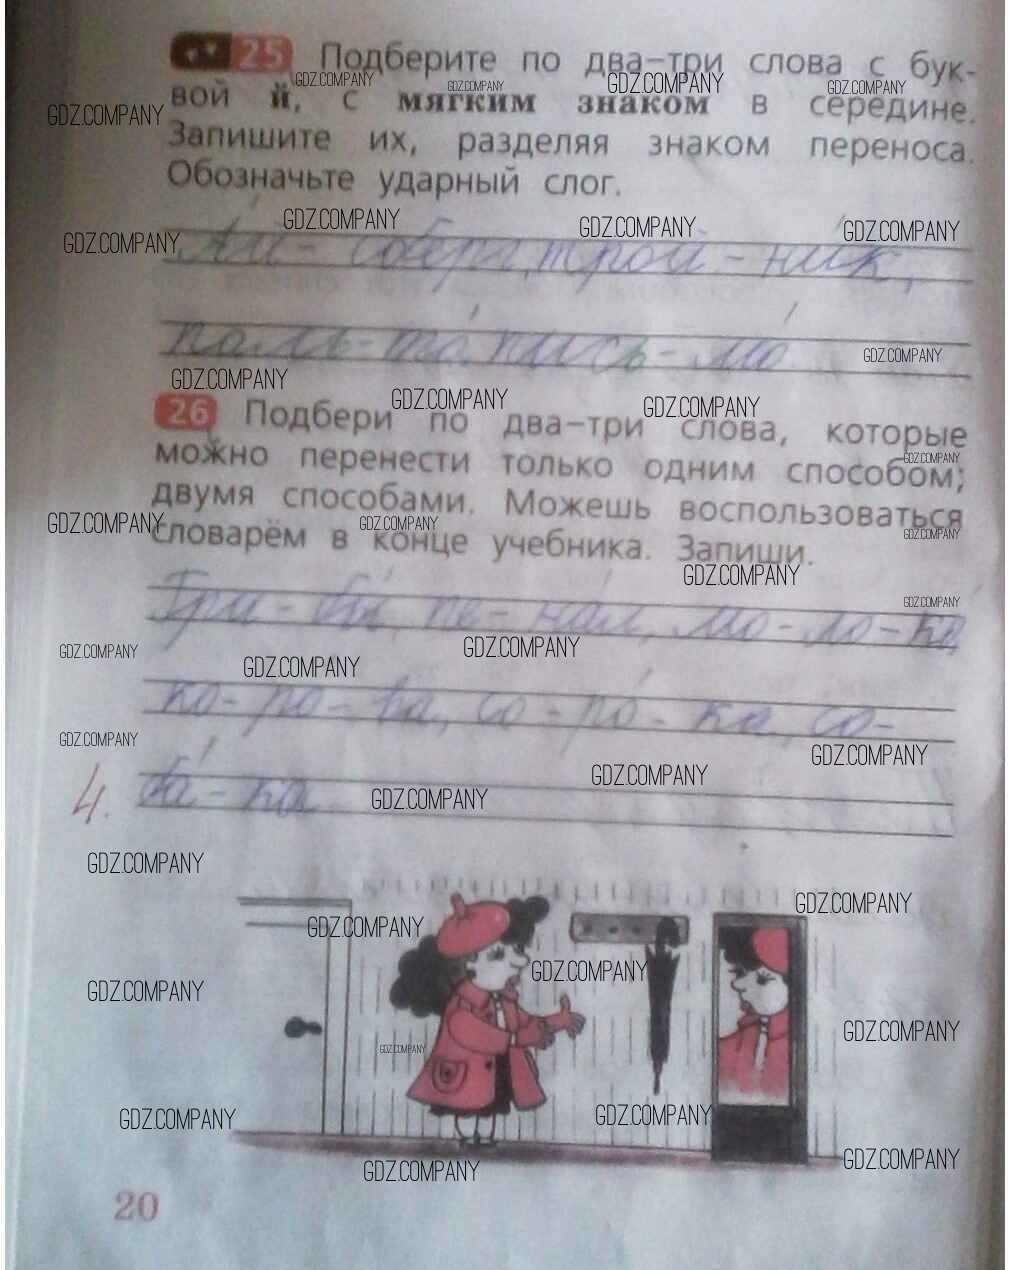 25 Подберите по два–три слова с бук-
вой й, с мягким знаком в середине.
Запишите их, разделяя знаком переноса.
Обозначьте ударный слог.
Ай- сберг, трой - ник,
паль- то, пись- мо
26 Подбери по два–три слова, которые
можно перенести только одним способом;
двумя способами. Можешь воспользоваться
словарём в конце учебника. Запиши.
Гри- бы, пе - нал, мо - ло - ко
ко- ро - ва, со - ро - ка, со-
4. ба - ка
GDZ.COMPANY
20